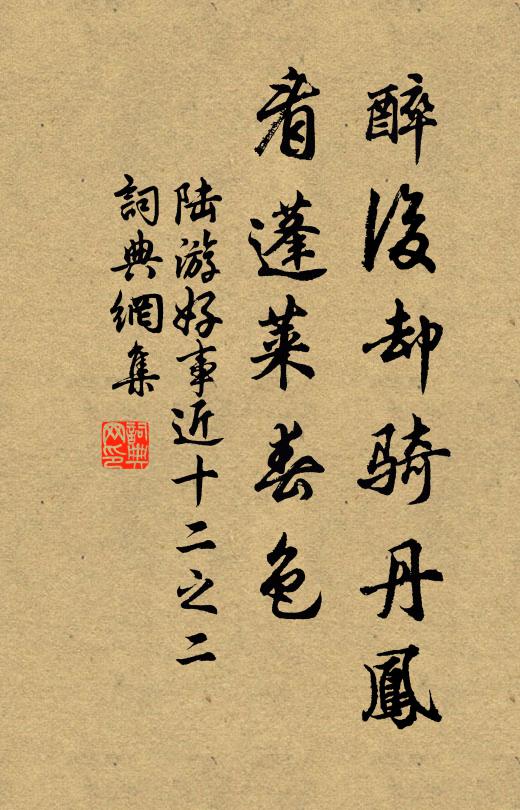 醉後却騎丹鳳
看蓬萊春色
陸游好事近十二之二
詞典網集
詞典網印